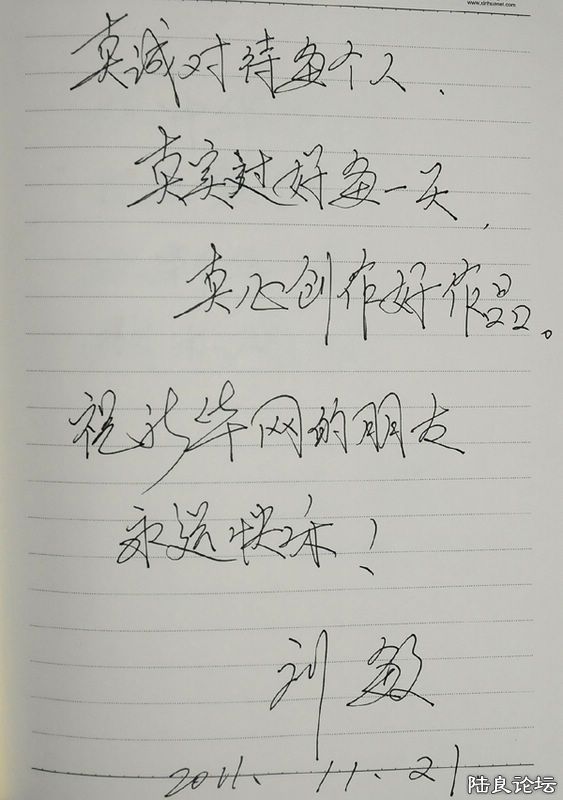 www.xinhuanet.com
真诚对待每个人、
真实过好每一天、
真心创作好作品。
祝新华网的朋友
永远快乐！
刘敏
2011.11.21
陆良论坛